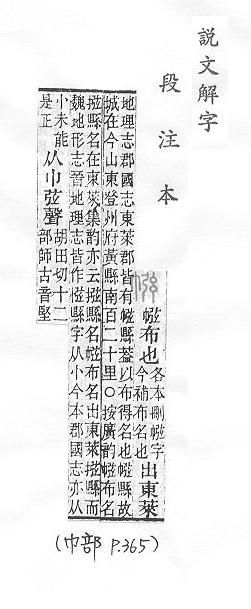 說文解字
段注本
㡉布也
各本刪㡉字
今補布名也
出東萊
地理志郡國志東萊郡皆有㡉縣葢以布得名也㡉縣故
城在今山東登州府黃縣南百二十里○按廣韵㡉布名
惤縣名在東萊集韵亦云惤縣名㡉布名出東萊惤縣而
魏地形志晉地理志皆作惤縣字从小今本郡國志亦从
小未能
是正
从巾弦聲
胡田切十二
部師古音堅
(巾部 P.365)